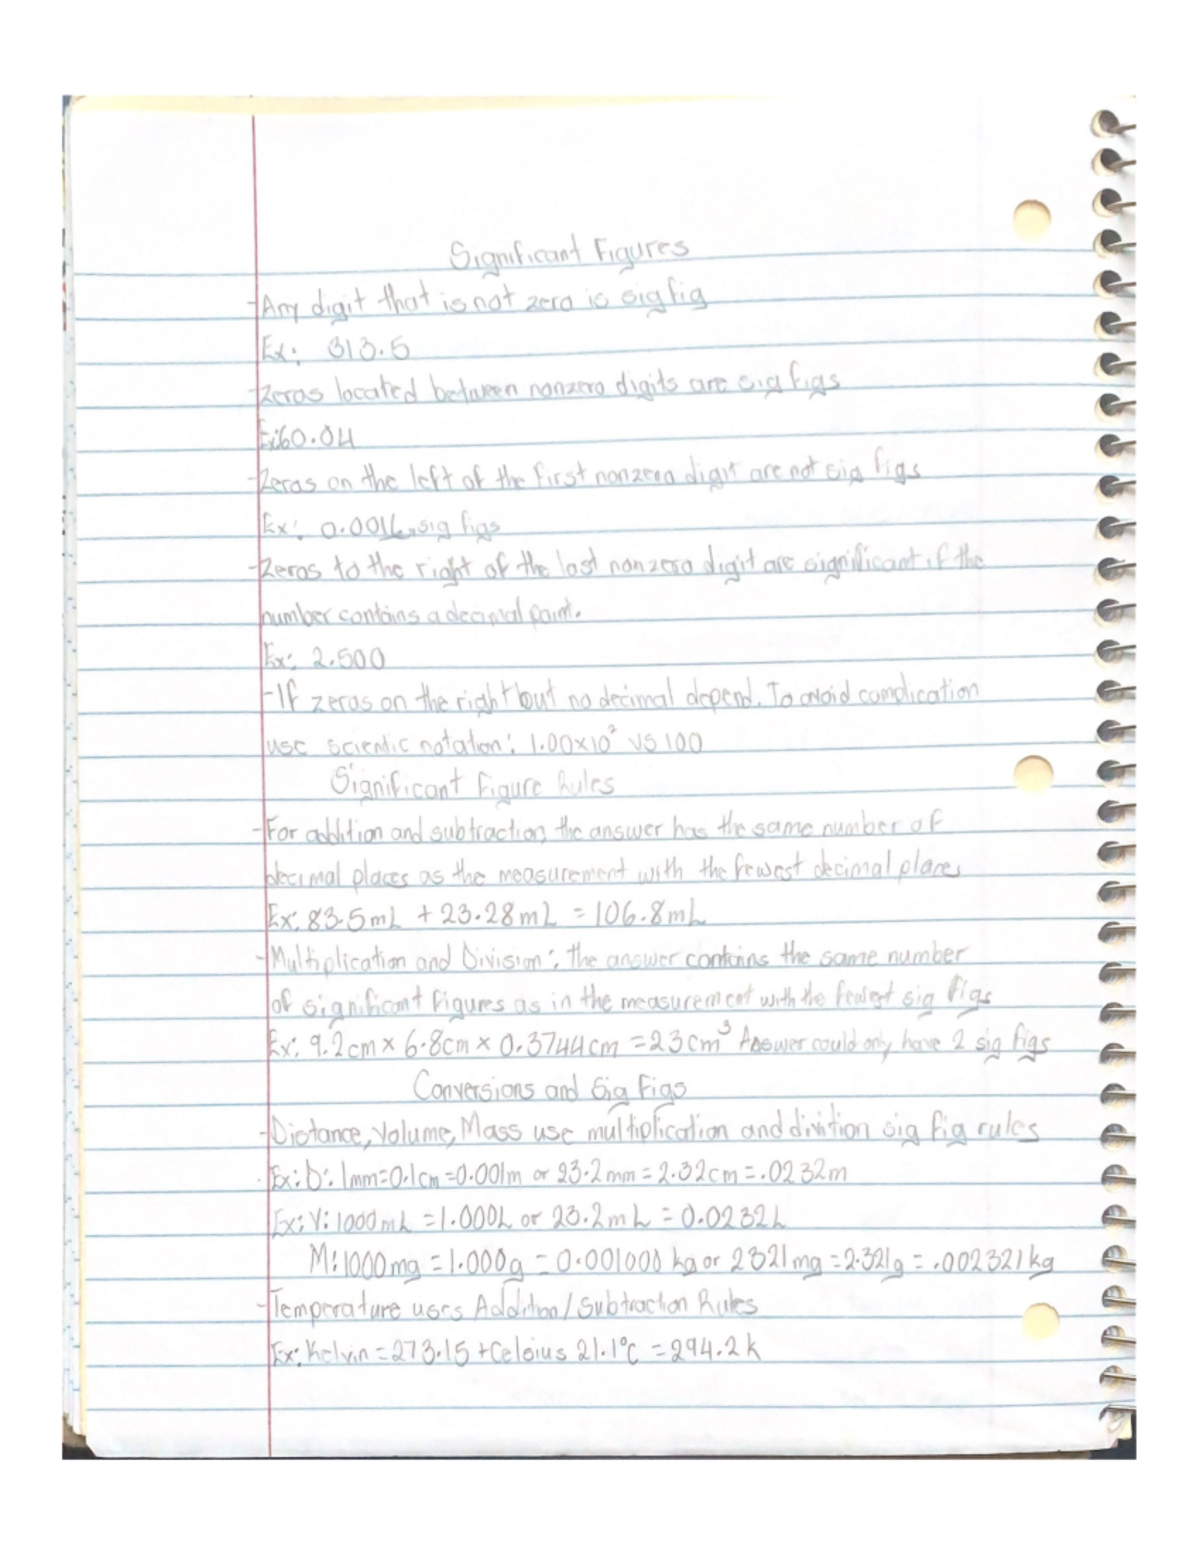 Significant Figures
-Any digit that is not zero is sig fig
Ex: 313.5
-Zeros located between nonzero digits are sig figs
Ex:60.04
-Zeros on the left of the first nonzero digit are not sig figs
Ex: 0.0016 sig figs
-Zeros to the right of the last nonzero digit are significant if the
number contains a decimal point.
Ex: 2.500
-If zeros on the right but no decimal depend. To avoid complication
use scientic notation: 1.00x10² vs 100
Significant Figure Rules
-For addition and subtraction, the answer has the same number of
decimal places as the measurement with the fewest decimal places
Ex: 83.5mL + 23.28mL = 106.8mL
-Multiplication and Division: the answer contains the same number
of significant figures as in the measurement with the fewest sig figs
Ex: 9.2cm x 6.8cm x 0.3744cm = 23cm³ Answer could only have 2 sig figs
Conversions and Sig Figs
-Distance, Volume, Mass use multiplication and divition sig fig rules
Ex: D: 1mm=0.1cm=0.001m or 23.2mm=2.32cm=.0232m
Ex: V: 1000mL =1.000L or 23.2mL = 0.0232L
M:1000mg = 1.000g = 0.001000 kg or 2321mg =2.321g = .002321kg
-Temperature uses Addition/Subtraction Rules
Ex: Kelvin = 273.15 +Celsius 21.1°C = 294.2k